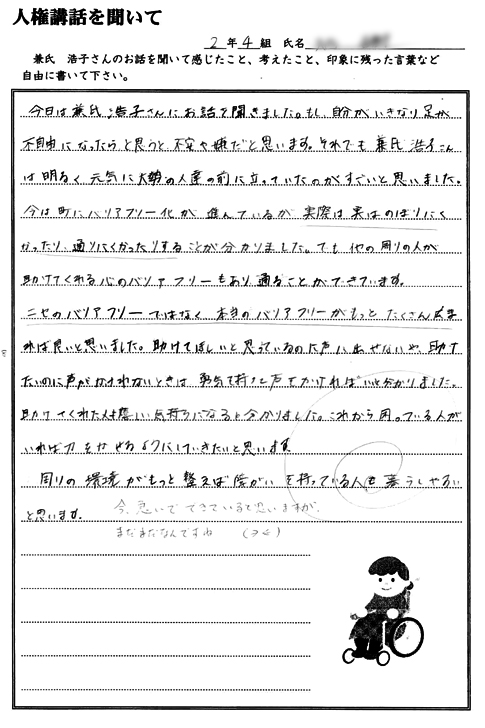 人権講話を聞いて
2年4組 氏名
兼氏 浩子さんのお話を聞いて感じたこと、考えたこと、印象に残った言葉など
自由に書いて下さい。
今日は兼氏 浩子さんにお話を聞きました。もし自分がいきなり足が
不自由になったらと思うと不安や嫌だと思います。それでも兼氏 浩子さん
は明るく元気に大勢の人達の前に立っていたのがすごいと思いました。
今は町にバリアフリー化が進んでいるが実際は実はのぼりにく
かったり、通りにくかったりすることが分かりました。でも他の周りの人が
助けてくれる心のバリアフリーもあり通ることができています。
ニセのバリアフリーではなく本当のバリアフリーがもっとたくさん広ま
れば良いと思いました。助けてほしいと思っているのに声に出せないや、助け
たいのに声がかけられないときは勇気を持って声をかければいいと分かりました。
助けてくれた人は嬉しい気持ちになると分かりました。これから困っている人が
いれば力をかせるようにしていきたいと思います。
周りの環境がもっと整えば障がいを持っている人も暮らしやすい
と思います。
今、急いでできていると思いますが、
まだまだなんですね